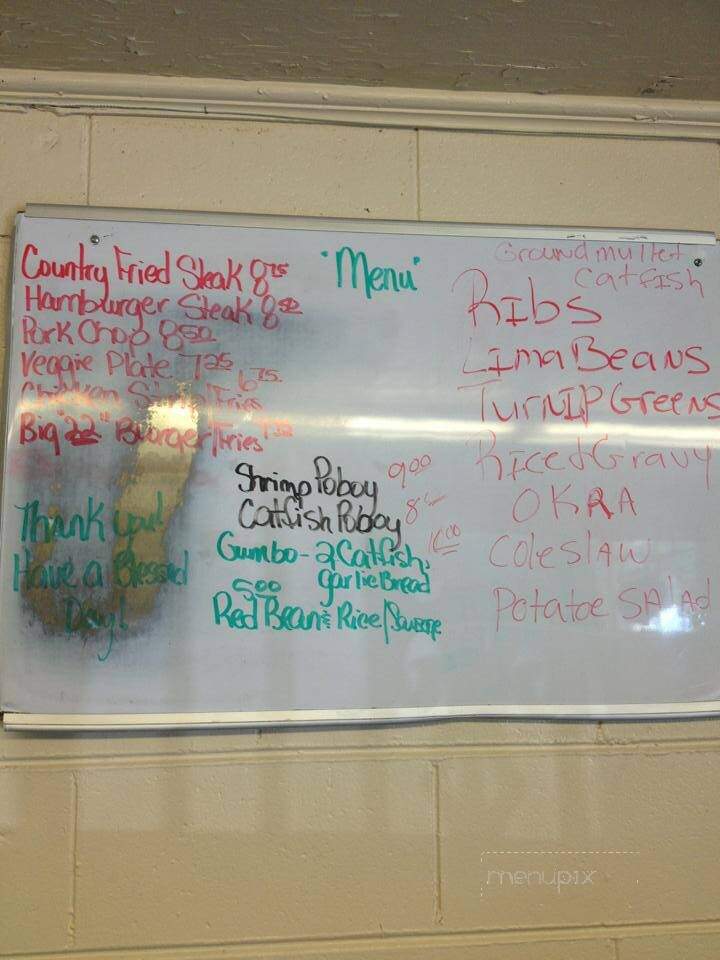 "Menu"
Country Fried Steak 8 75
Hamburger Steak 8 50
Pork Chop 8 50
Veggie Plate 7 25
Chicken Strip/Fries 6 75
Big "22" Burger/Fries
Thank you!
Have a Blessed
Day!
Shrimp Poboy 9 00
Catfish Poboy
Gumbo - 2 Catfish,
garlic Bread
5 00
Red Bean & Rice/Sausage
Ground mullet
Catfish
RIbs
LIma Beans
TurNIP Greens
Rice & Gravy
OKRA
Coleslaw
Potatoe SAlad
menupix